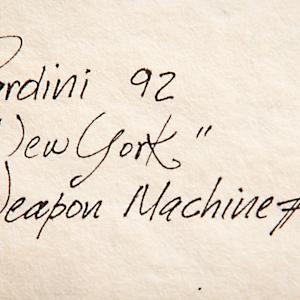 Pardini 92
"New York"
Weapon Machine#